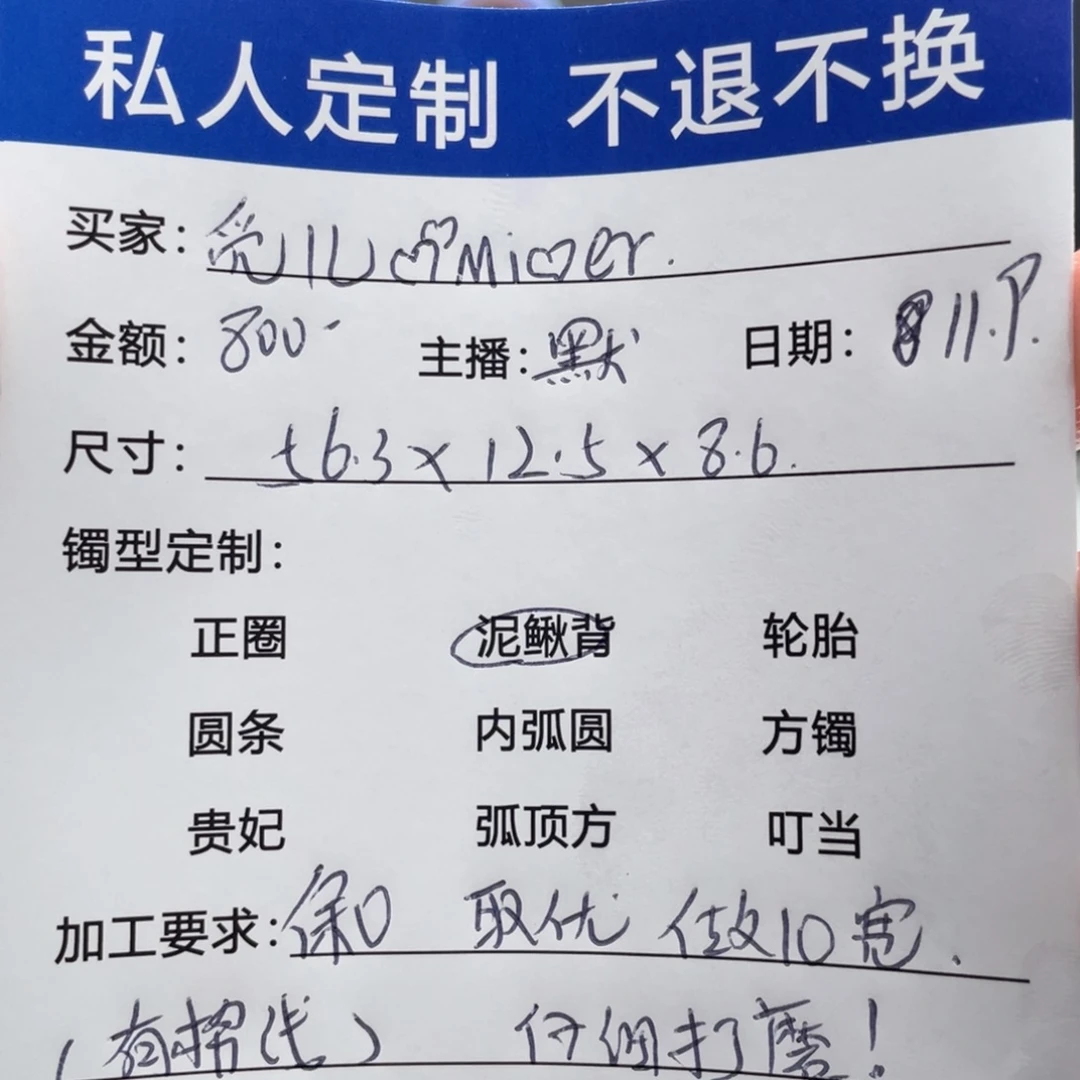 私人定制 不退不换
买家: Mi er.
金额: 800- 主播: 默 日期: 11.
尺寸: 56.3 × 12.5 × 8.6.
镯型定制:
正圈 泥鳅背 轮胎
圆条 内弧圆 方镯
贵妃 弧顶方 叮当
加工要求: 保口 取优 做10宽.
(有棉线) 仔细打磨!